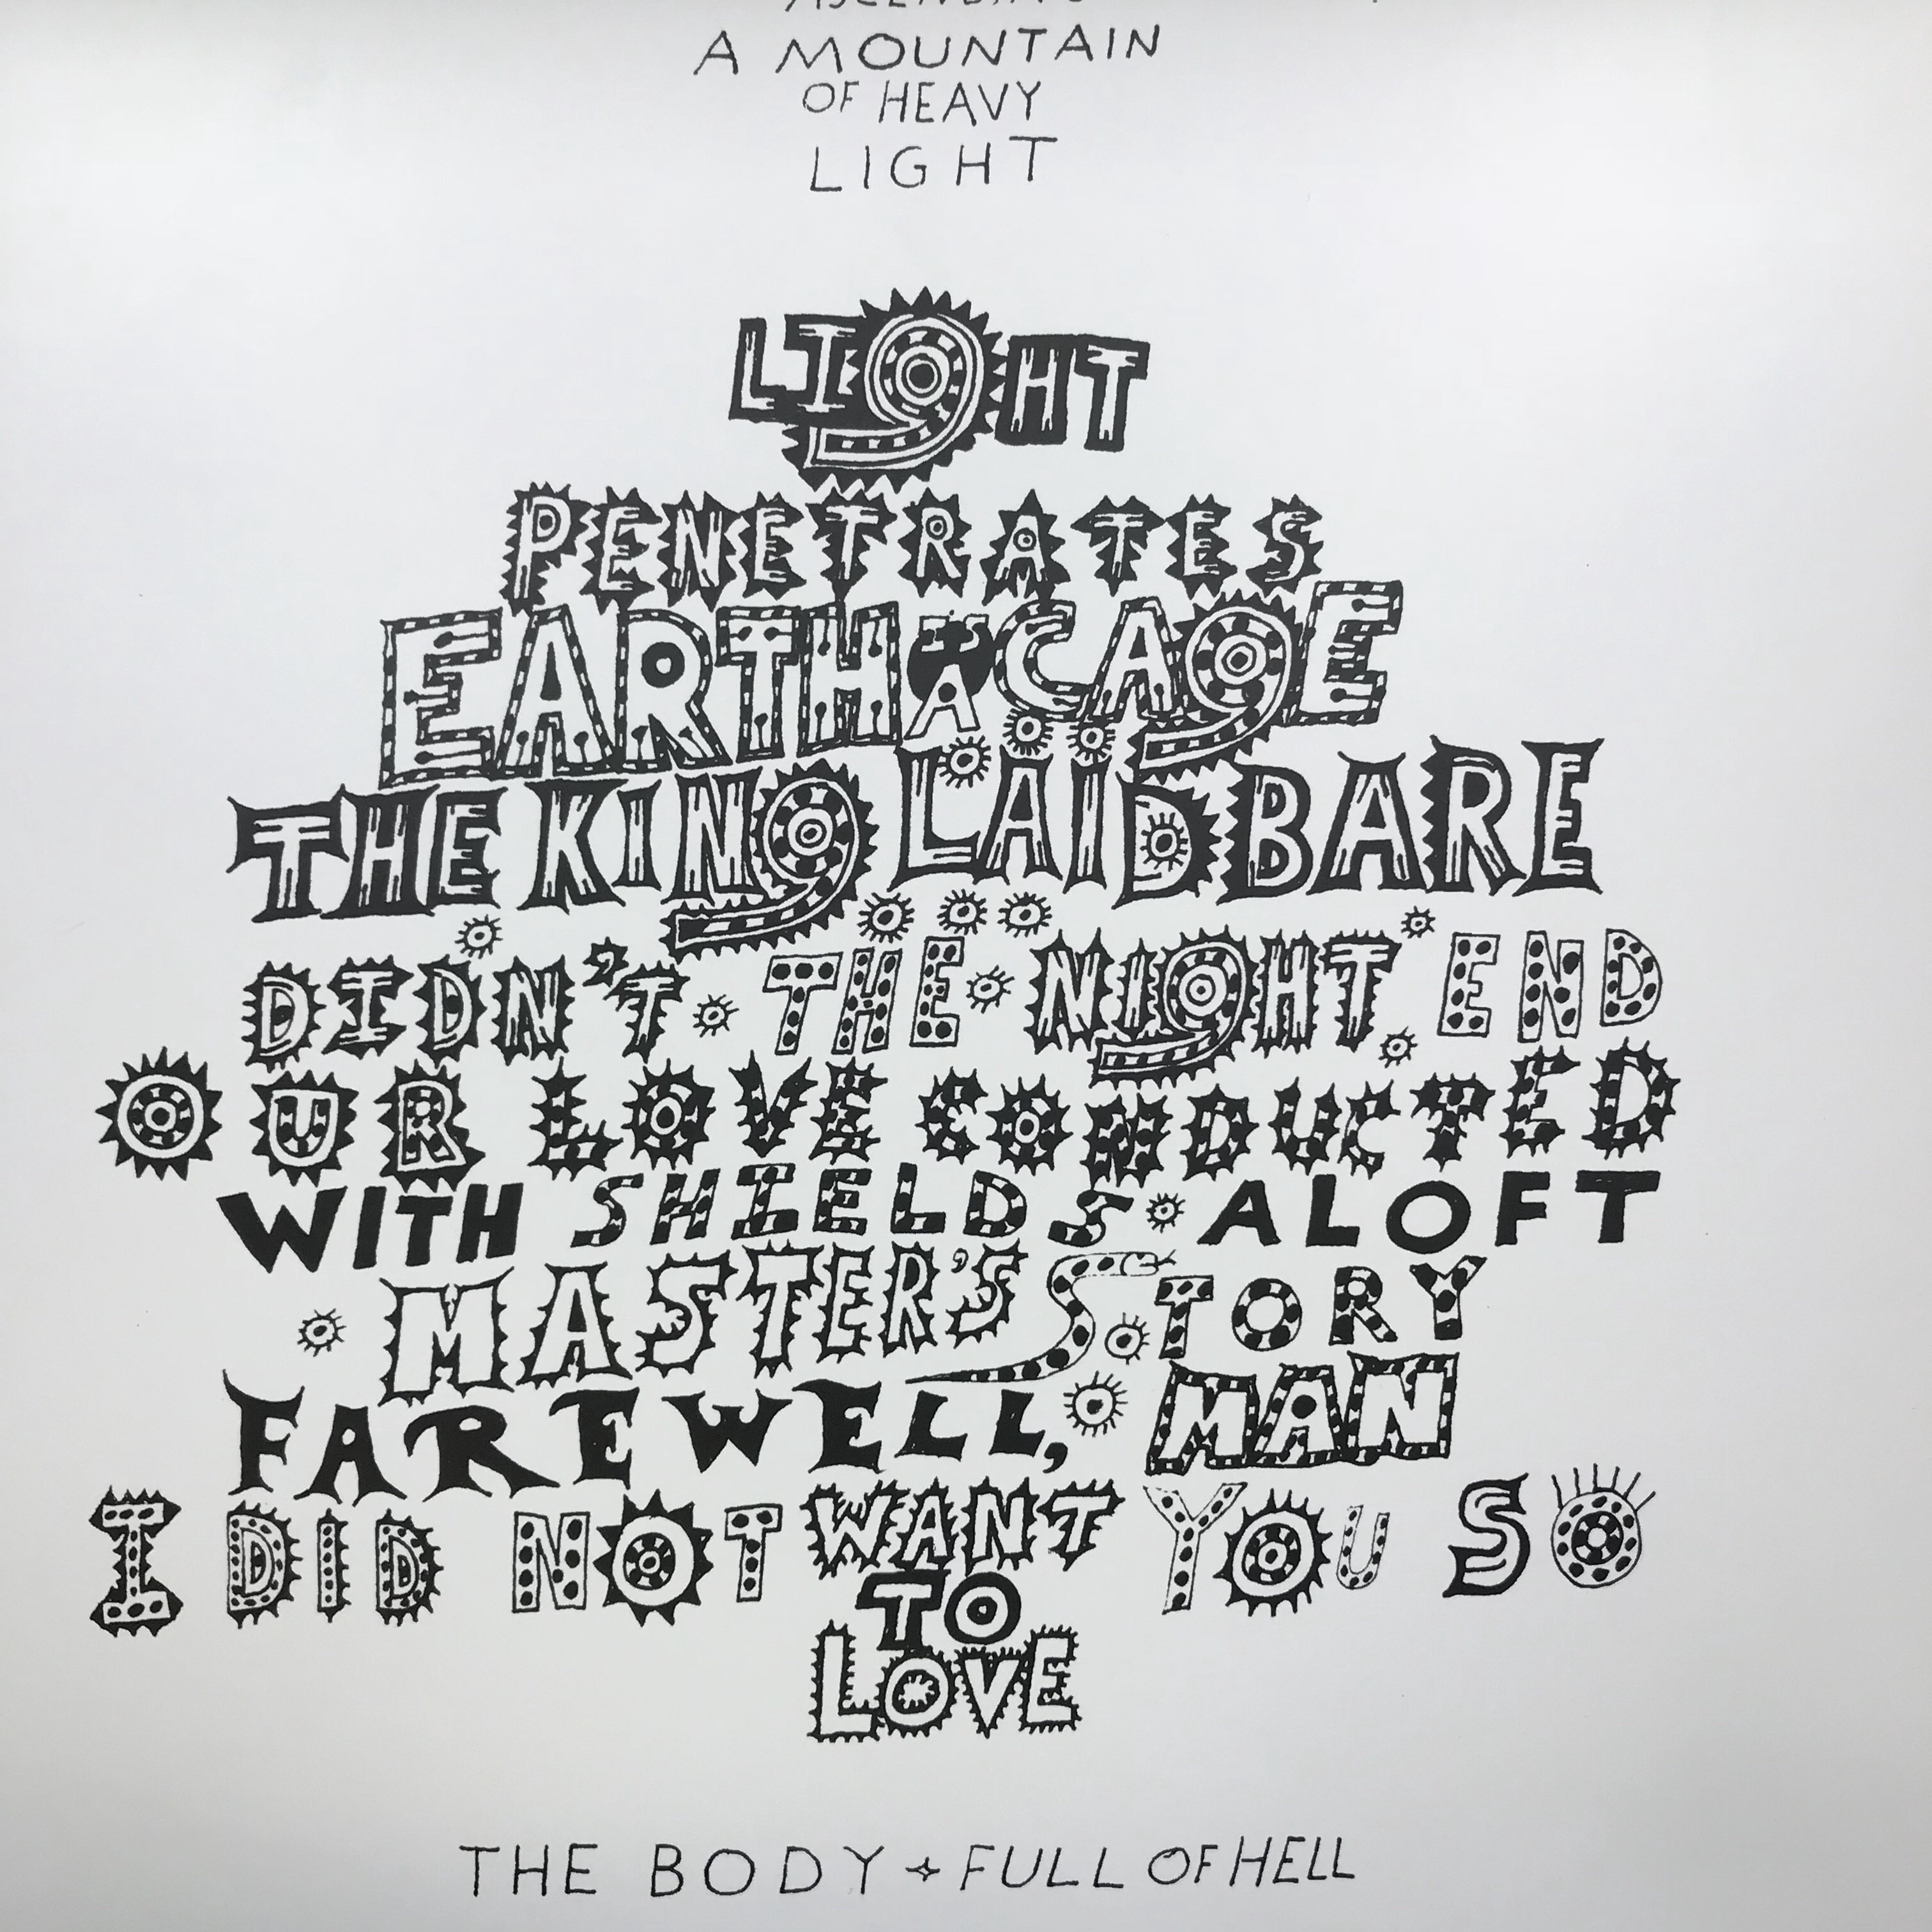 A MOUNTAIN
OF HEAVY
LIGHT
LIGHT
PENETRATES
EARTH IS A CAGE
THE KING LAID BARE
DIDN'T THE NIGHT END
OUR LOVE CONDUCTED
WITH SHIELDS ALOFT
MASTER'S STORY
FAREWELL, MAN
I DID NOT WANT YOU SO
TO
LOVE
THE BODY + FULL OF HELL